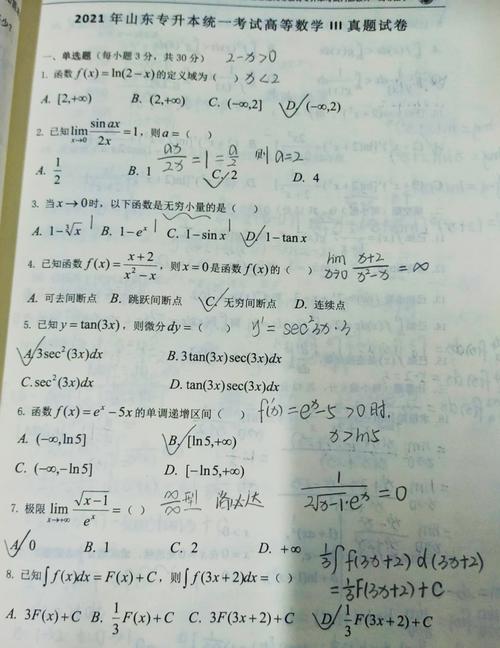 2021年山东专升本统一考试高等数学 III 真题试卷
一、单选题（每小题3分，共30分） 2-x>0
1. 函数 f(x)=ln(2-x)的定义域为（ ） x<2
A. [2,+∞) B. (2,+∞) C. (-∞,2] D. (-∞,2)
2. 已知 lim x→0 sin ax / 2x = 1，则 a=（ ） ax/2x = 1 = a/2 则 a=2
A. 1/2 B. 1 C. 2 D. 4
3. 当 x→0时，以下函数是无穷小量的是（ ）
A. 1-∛x B. 1-eˣ C. 1-sin x D. 1-tan x
4. 已知函数 f(x)= x+2 / x²-x，则 x=0是函数 f(x)的（ ） lim x→0 x+2 / x²-x = ∞
A. 可去间断点 B. 跳跃间断点 C. 无穷间断点 D. 连续点
5. 已知 y=tan(3x)，则微分 dy=（ ） y'=sec²3x·3
A. 3sec²(3x)dx B. 3tan(3x)sec(3x)dx
C. sec²(3x)dx D. tan(3x)sec(3x)dx
6. 函数 f(x)=eˣ-5x 的单调递增区间（ ） f'(x)=eˣ-5>0时,
x>ln5
A. (-∞,ln5] B. [ln5,+∞)
C. (-∞,-ln5] D. [-ln5,+∞)
7. 极限 lim x→+∞ √(x-1) / eˣ =（ ） ∞/∞型 洛必达 1 / 2√(x-1)·eˣ = 0
A. 0 B. 1 C. 2 D. +∞
8. 已知 ∫f(x)dx=F(x)+C，则 ∫f(3x+2)dx=（ ） 1/3∫f(3x+2)d(3x+2)
=1/3F(3x+2)+C
A. 3F(x)+C B. 1/3F(x)+C C. 3F(3x+2)+C D. 1/3F(3x+2)+C